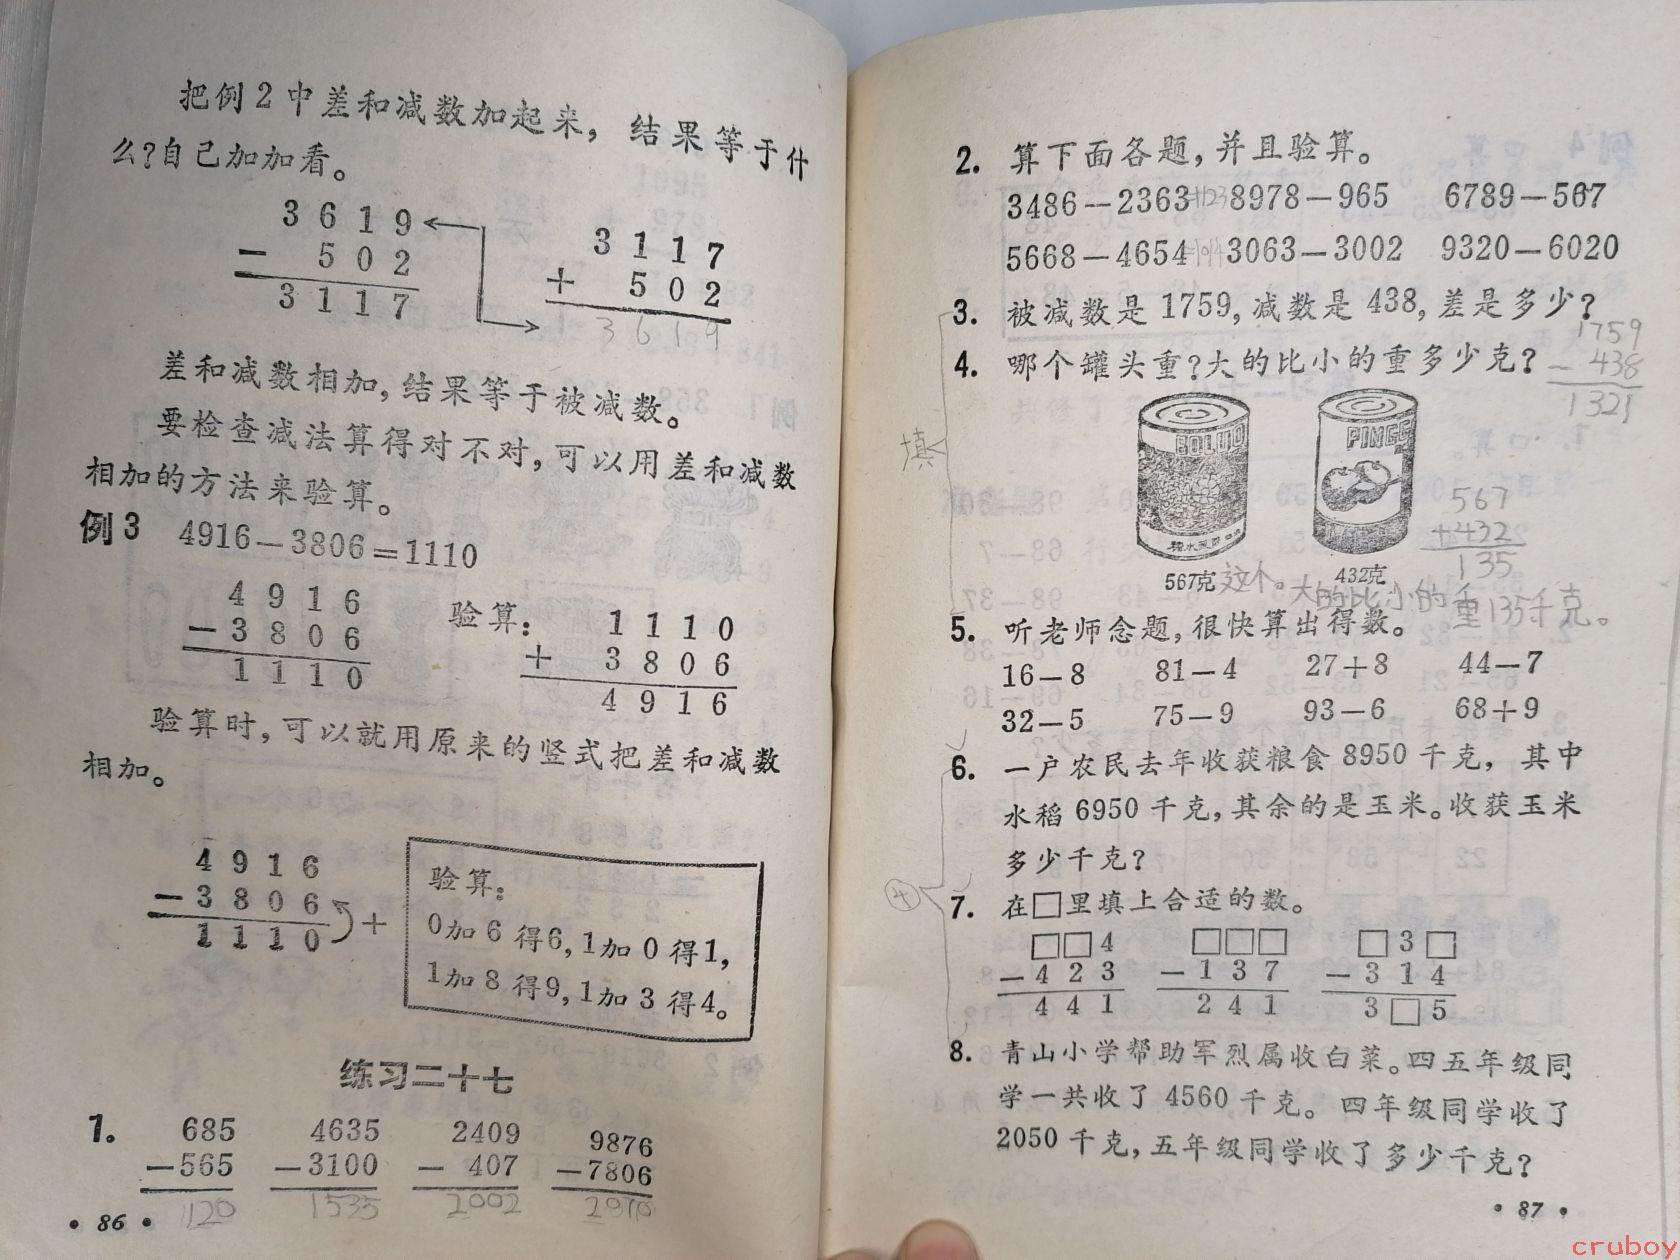 把例2中差和减数加起来，结果等于什
么？自己加加看。
3619
－ 502
3117
3117
＋ 502
3619
差和减数相加，结果等于被减数。
要检查减法算得对不对，可以用差和减数
相加的方法来验算。
例3 4916－3806＝1110
4916
－3806
1110
验算：
1110
＋ 3806
4916
验算时，可以就用原来的竖式把差和减数
相加。
4916
－3806
1110
＋
验算：
0加6得6，1加0得1，
1加8得9，1加3得4。
练习二十七
1. 685 4635 2409 9876
－565 －3100 － 407 －7806
120 1535 2002 2070
• 86 •
2. 算下面各题，并且验算。
3486－2363=1123 8978－965 6789－567
5668－4654=1014 3063－3002 9320－6020
3. 被减数是1759，减数是438，差是多少？
1759
－ 438
1321
4. 哪个罐头重？大的比小的重多少克？
填
BOLUO
糖水菠萝
PINGG
567
＋432
135
567克 这个。
432克
大的比小的重135千克。
5. 听老师念题，很快算出得数。
16－8 81－4 27＋8 44－7
32－5 75－9 93－6 68＋9
6. 一户农民去年收获粮食8950千克，其中
水稻6950千克，其余的是玉米。收获玉米
多少千克？
7. 在□里填上合适的数。
□□4 □□□ □3□
－423 －137 －314
441 241 3□5
8. 青山小学帮助军烈属收白菜。四五年级同
学一共收了4560千克。四年级同学收了
2050千克，五年级同学收了多少千克？
• 87 •
cruboy